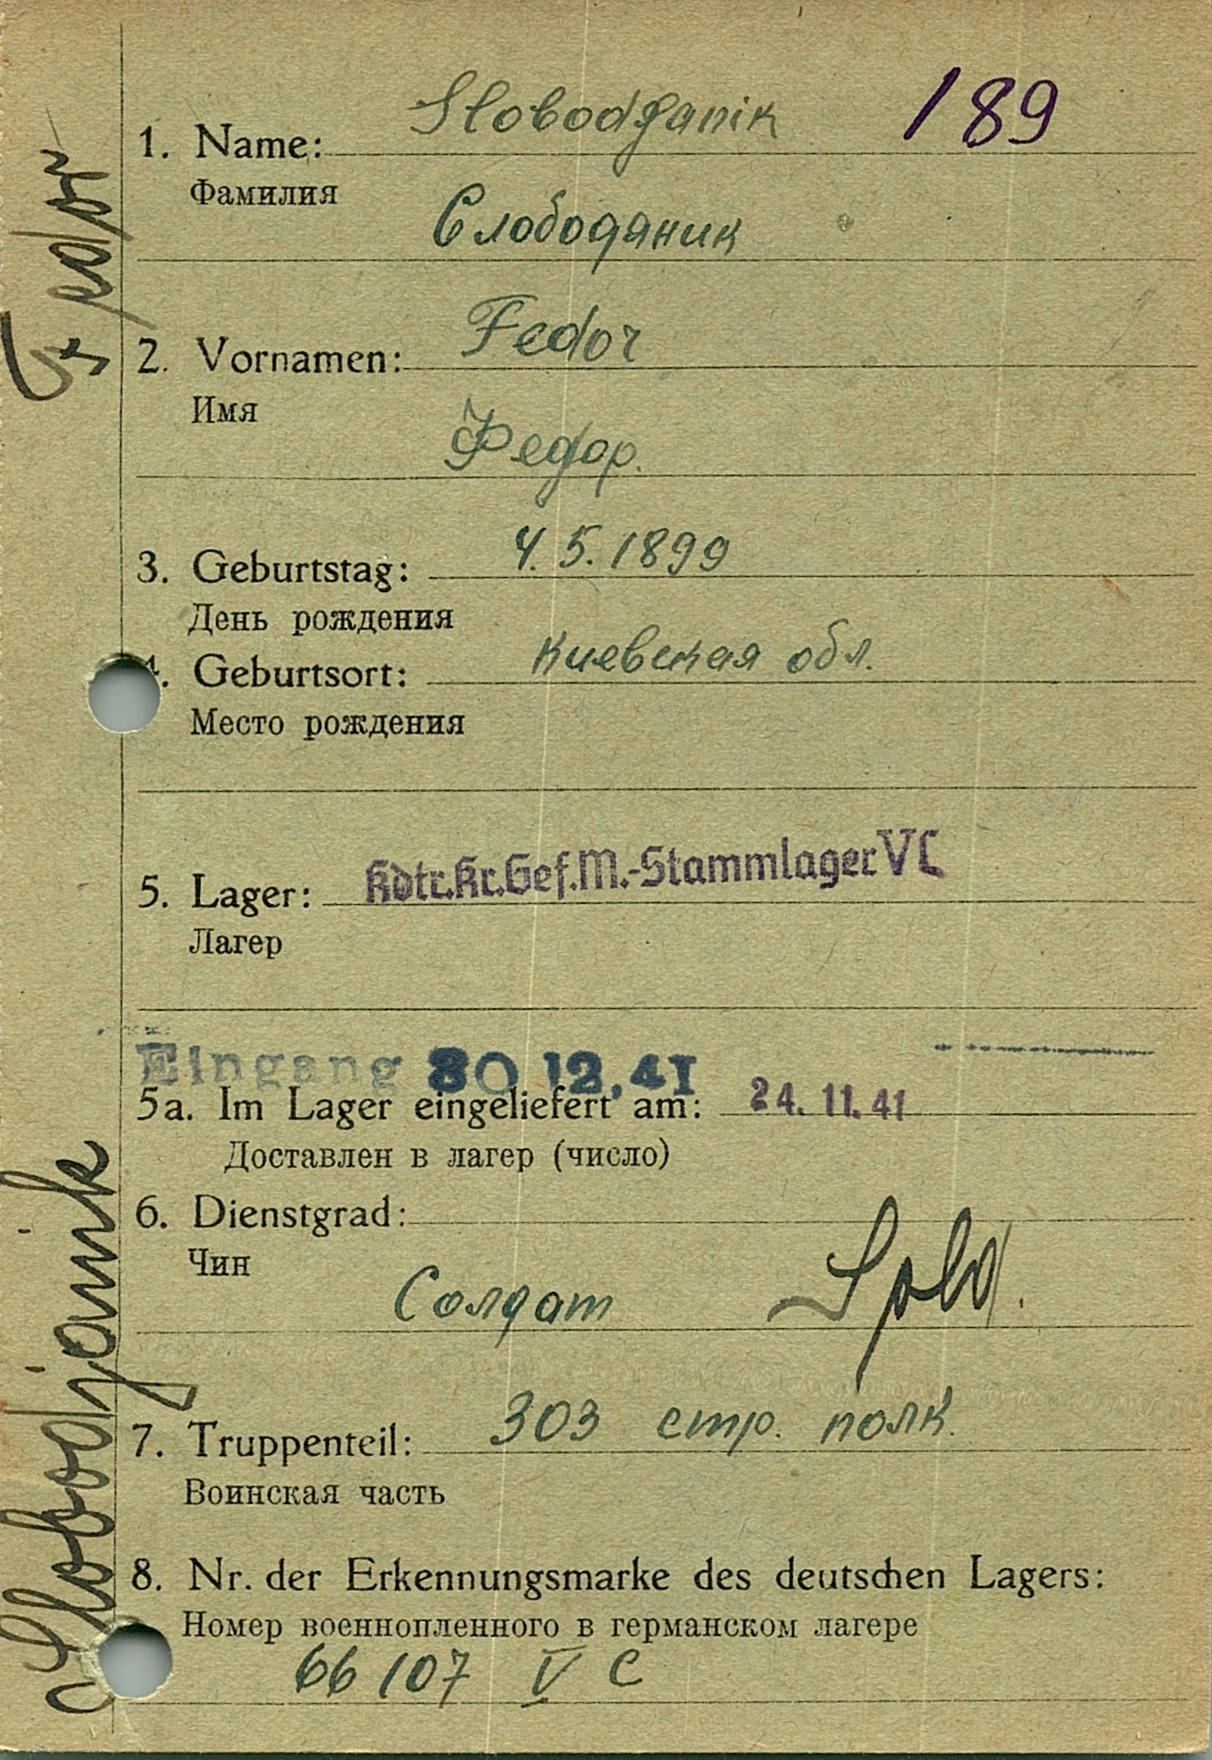 Slobodjanik 189
1. Name:
Фамилия
Слободяник
Fedor
2. Vornamen:
Имя
Федор.
3. Geburtstag: 4.5.1899
День рождения
4. Geburtsort: Киевская обл.
Место рождения
5. Lager: Kdtr.Kr.Gef.M.-Stammlager VC
Лагер
Eingang 30.12.41
5a. Im Lager eingeliefert am: 24.11.41
Доставлен в лагер (число)
6. Dienstgrad:
Чин
Солдат Sold.
7. Truppenteil: 303 стр. полк.
Воинская часть
8. Nr. der Erkennungsmarke des deutschen Lagers:
Номер военнопленного в германском лагере
66107 V C
Slobodjanik Fedor